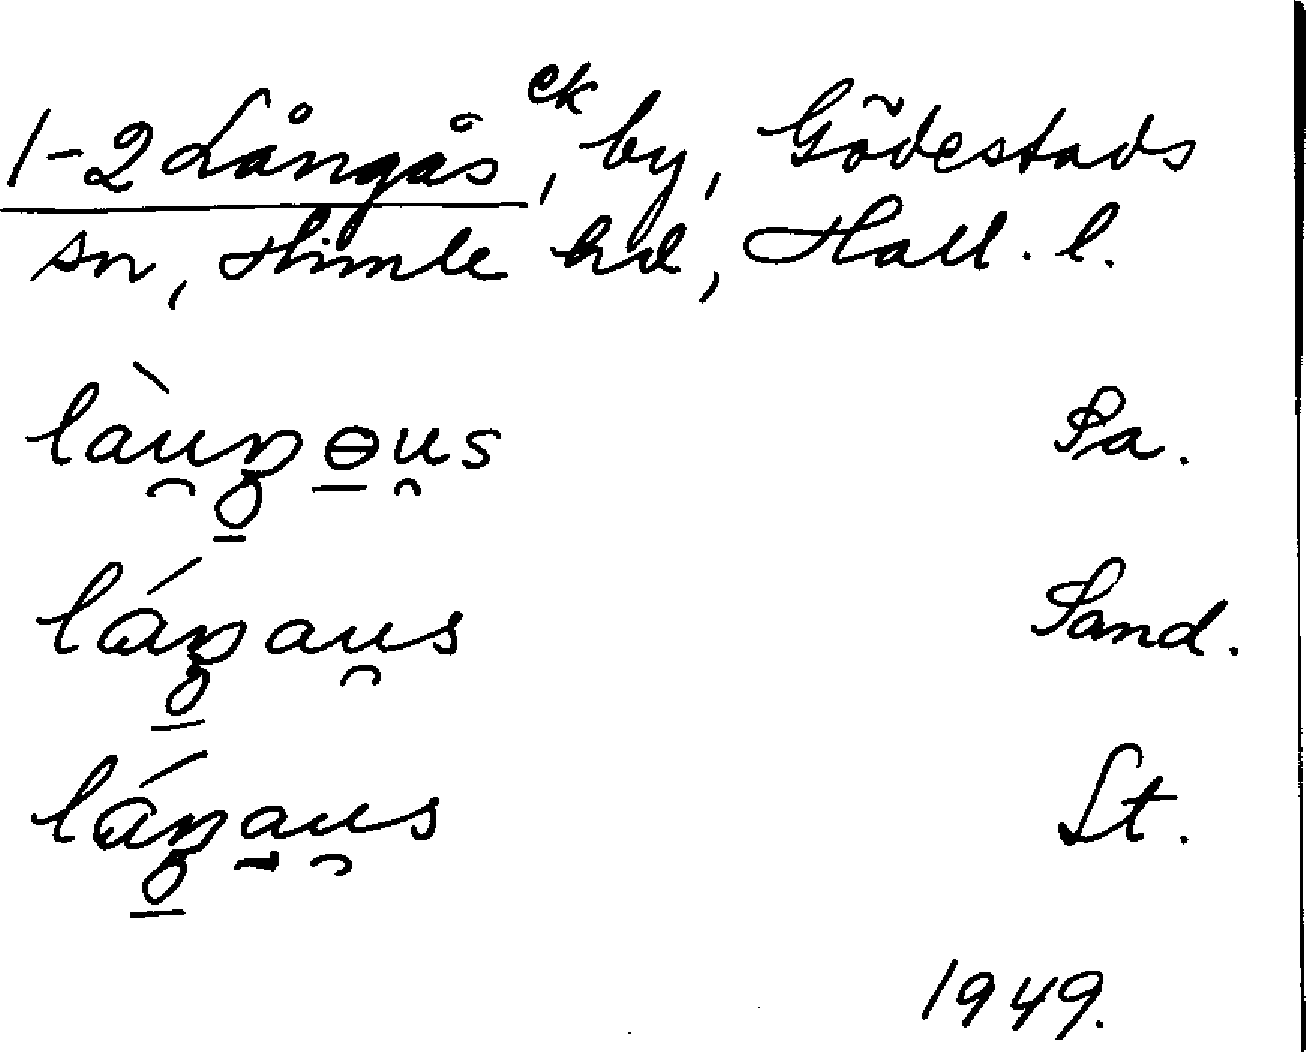 1-2 Långås ek, by, Gödestads
sn, Himle hd, Hall. l.
làu̯ŋɵu̯s Pa.
láŋau̯s Sand.
láŋau̯s St.
1949.